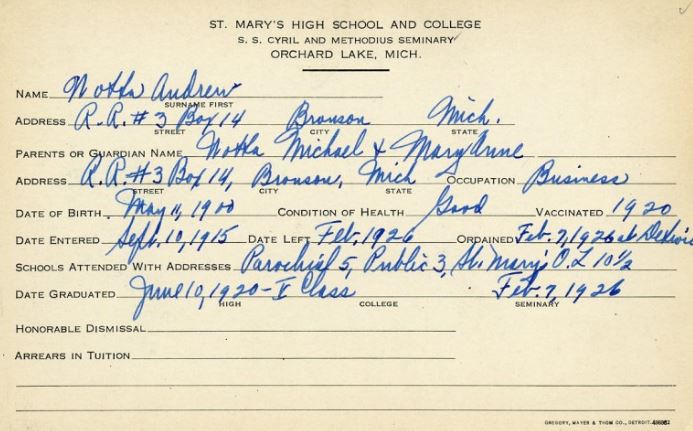 ST. MARY'S HIGH SCHOOL AND COLLEGE
S. S. CYRIL AND METHODIUS SEMINARY
ORCHARD LAKE, MICH.
NAME Wotta Andrew
SURNAME FIRST
ADDRESS R. R. # 3 Box 14 Bronson Mich.
STREET CITY STATE
PARENTS OR GUARDIAN NAME Wotta Michael & Mary Anne
ADDRESS R. R. # 3 Box 14, Bronson, Mich OCCUPATION Business
STREET CITY STATE
DATE OF BIRTH May 11, 1900 CONDITION OF HEALTH Good VACCINATED 1920
DATE ENTERED Sept. 10, 1915 DATE LEFT Feb. 1926 ORDAINED Feb. 7, 1926 at Detroit
SCHOOLS ATTENDED WITH ADDRESSES Parochial 5, Public 3, St. Mary's O. L 10½
DATE GRADUATED June 10, 1920 - V Class Feb. 7, 1926
HIGH COLLEGE SEMINARY
HONORABLE DISMISSAL
ARREARS IN TUITION
GREGORY, MAYER & THOM CO., DETROIT